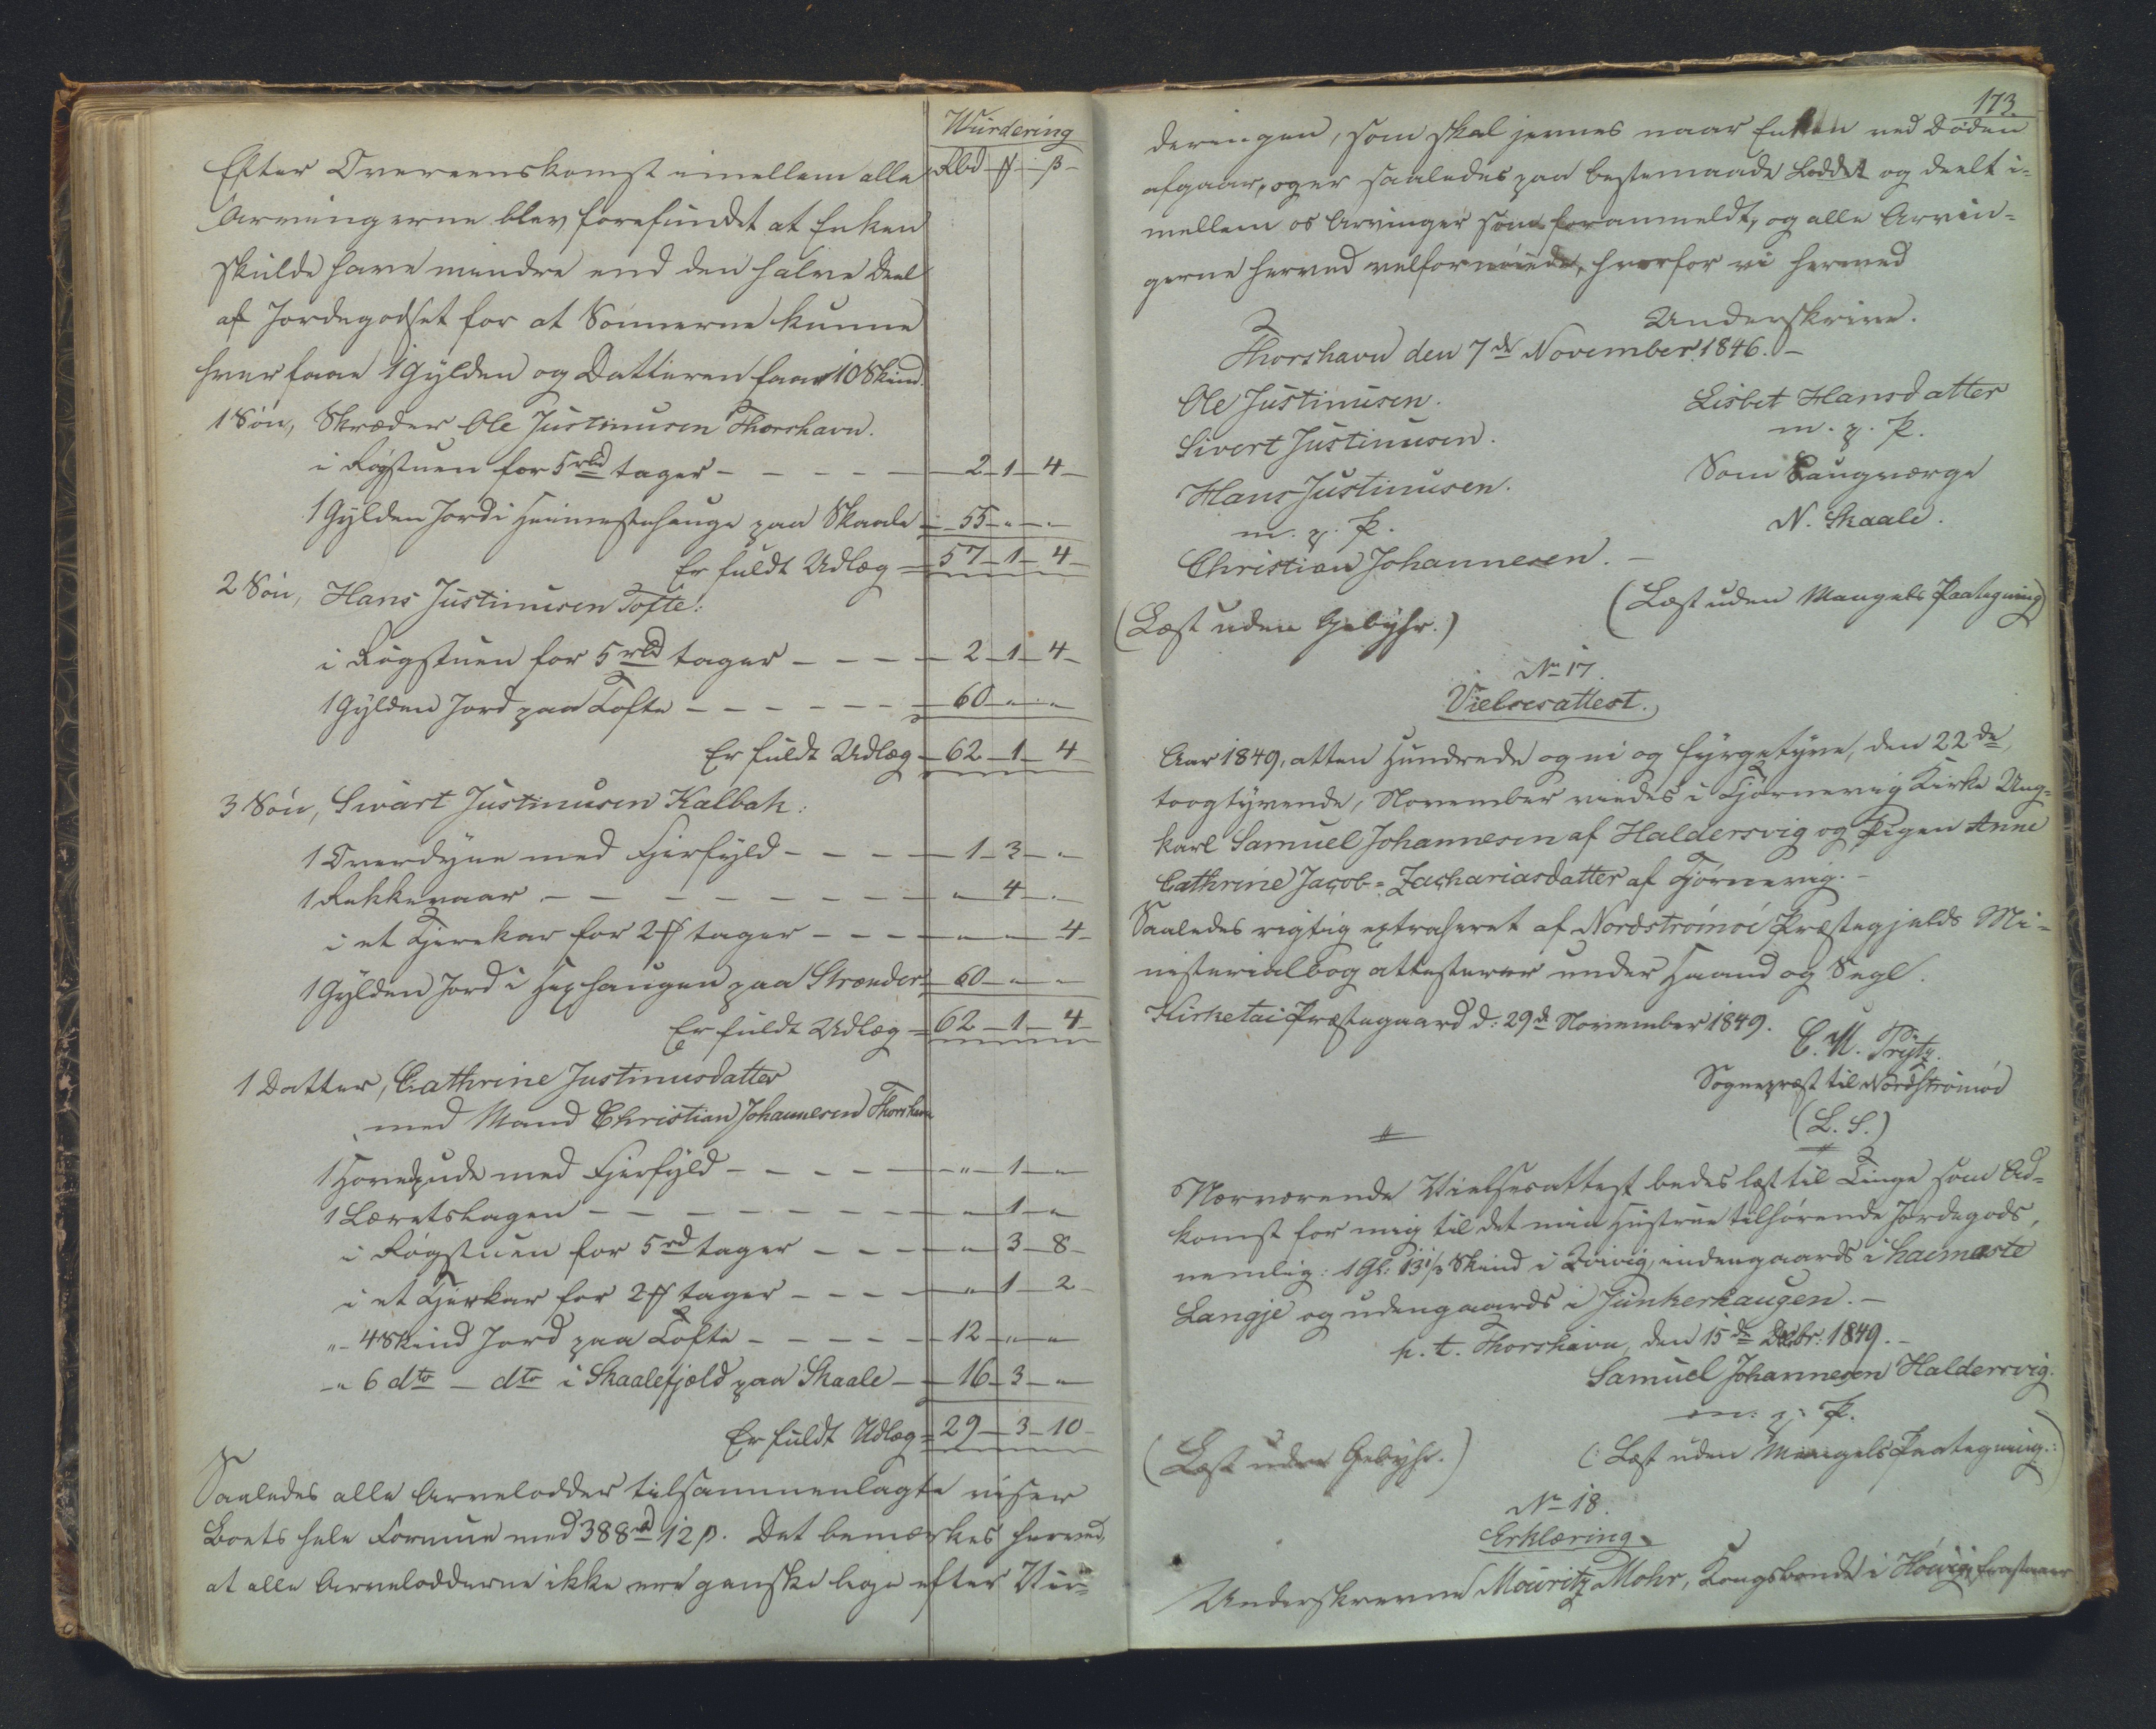 Wurdering
Rbd ₰ β
Efter Overeenskomst imellem alle
Arvingerne blev forefundet at Enken
skulde have mindre end den halve Deel
af Jordegodset for at Sönnerne kunne
hver faae 1 Gylden og Datteren faae 10 Skind.
1 Sön, Skræder Ole Justinusen Thorshavn.
i Rögstuen for 5 rbd tager - - - - - 2 - 1 - 4 -
1 Gylden Jord i Heimestehauge paa Skaale - 55 - " - " -
Er fuldt Udlæg = 57 - 1 - 4 -
2 Sön, Hans Justinusen Tofte:
i Rögstuen for 5 rbd tager - - - - 2 - 1 - 4 -
1 Gylden Jord paa Tofte - - - - - - 60 - " - "
Er fuldt Udlæg - 62 - 1 - 4
3 Sön, Sivart Justinusen Kalbak:
1 Overdyne med Fjerfyld - - - - 1 - 3 - "
1 Rekkevaar - - - - - - - - " - 4 - "
i et Kjerekar for 2 ₰ tager - - - - " - " - 4 -
1 Gylden Jord i Huxhaugen paa Strænder - 60 - " - "
Er fuldt Udlæg = 62 - 1 - 4 -
1 Datter, Cathrine Justinusdatter
med Mand Christian Johannesen Thorshavn
1 Hovedpude med Fjerfyld - - - - - " - 1 - "
1 Lærretslagen - - - - - - - - " - 1 - "
i Rögstuen for 5 rd tager - - - - " - 3 - 8 -
i et Kjerkar for 2 ₰ tager - - - - " - 1 - 2 -
" - 4 Skind Jord paa Tofte - - - - - 12 - " - "
- " 6 dto - dto i Skaalefjæld paa Skaale - 16 - 3 - "
Er fuldt Udlæg = 29 - 3 - 10 -
Saaledes alle Arvelodder tilsammenlagte viser
Boets hele Formue med 388 rd 12 β. Det bemærkes herved,
at alle Arvelodderne ikke ere ganske lige efter Vur-
173.
deringen, som skal jevnes naar Enken ved Döden
afgaar, og er saaledes paa bestemaade Loddet og deelt i-
mellem os Arvinger som foranmeldt, og alle Arvin-
gerne herved velfornöiede, hvorfor vi hermed
Underskrive.
Thorshavn den 7de November 1846. -
Ole Justinusen. Lisbet Hansdatter
Sivert Justinusen. m. p. P.
Hans Justinusen. Som Laugværge
m. p. P. N. Skaale.
Christian Johannesen. -
(Læst uden Gebyhr.) (Læst uden Mangels Paategning)
No 17.
Vielsesattest.
Aar 1849, atten Hundrede og ni og fyrgetyve, den 22de,
toogtyvende, November viedes i Tjörnevig Kirke Ung-
karl Samuel Johannesen af Haldersvig og Pigen Anne
Cathrine Jacob-Zachariasdatter af Tjörnevig. -
Saaledes rigtig extraheret af Nordströmöe Præstegjelds Mi-
nisterialbog attesterer under Haand og Segl.
Kirketai Præstegaard d: 29de November 1849.
C. M. Prytz.
Sognepræst til Nordströmöe
(L. S.)
Nærværende Vielsesattest bedes læst til Tinge som Ad-
komst for mig til det min Hustrue tilhörende Jordegods,
nemlig: 1 Gl: 13 1/3 Skind i Qvivig, indengaards i haimaste
Langje og udengaards i Junkerhaugen. -
p. t. Thorshavn, den 15de Decbr: 1849. -
Samuel Johannesen Haldersvig.
m. p. P.
(Læst uden Gebyhr.) (: Læst uden Mangels Paategning. :)
No 18.
Erklæring.
Underskrevne Mouritz Mohr, Kongsbonde i Höivig, fraf